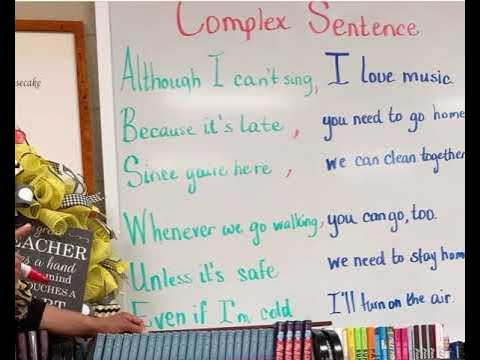 Complex Sentence
Although I can't sing, I love music.
Because it's late, you need to go home
Since you're here, we can clean together
Whenever we go walking, you can go, too.
Unless it's safe we need to stay home
Even if I'm cold I'll turn on the air.
esecake
great
EACHER
a hand
mind
OUCHES A